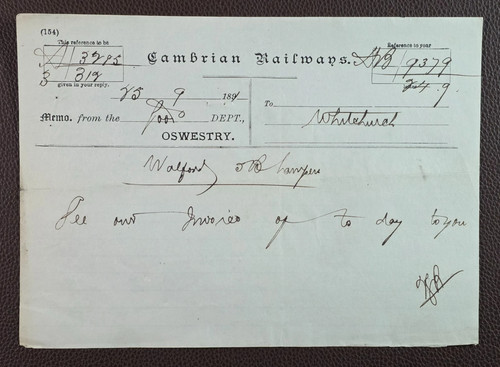 (154)
This reference to be
A 3295
3 312
given in your reply.
Cambrian Railways.
Reference to your
9379
24 9
25 9 1891
Memo. from the DEPT.,
OSWESTRY.
To
Whitchurch
Walford
See our Invoice of to day to you